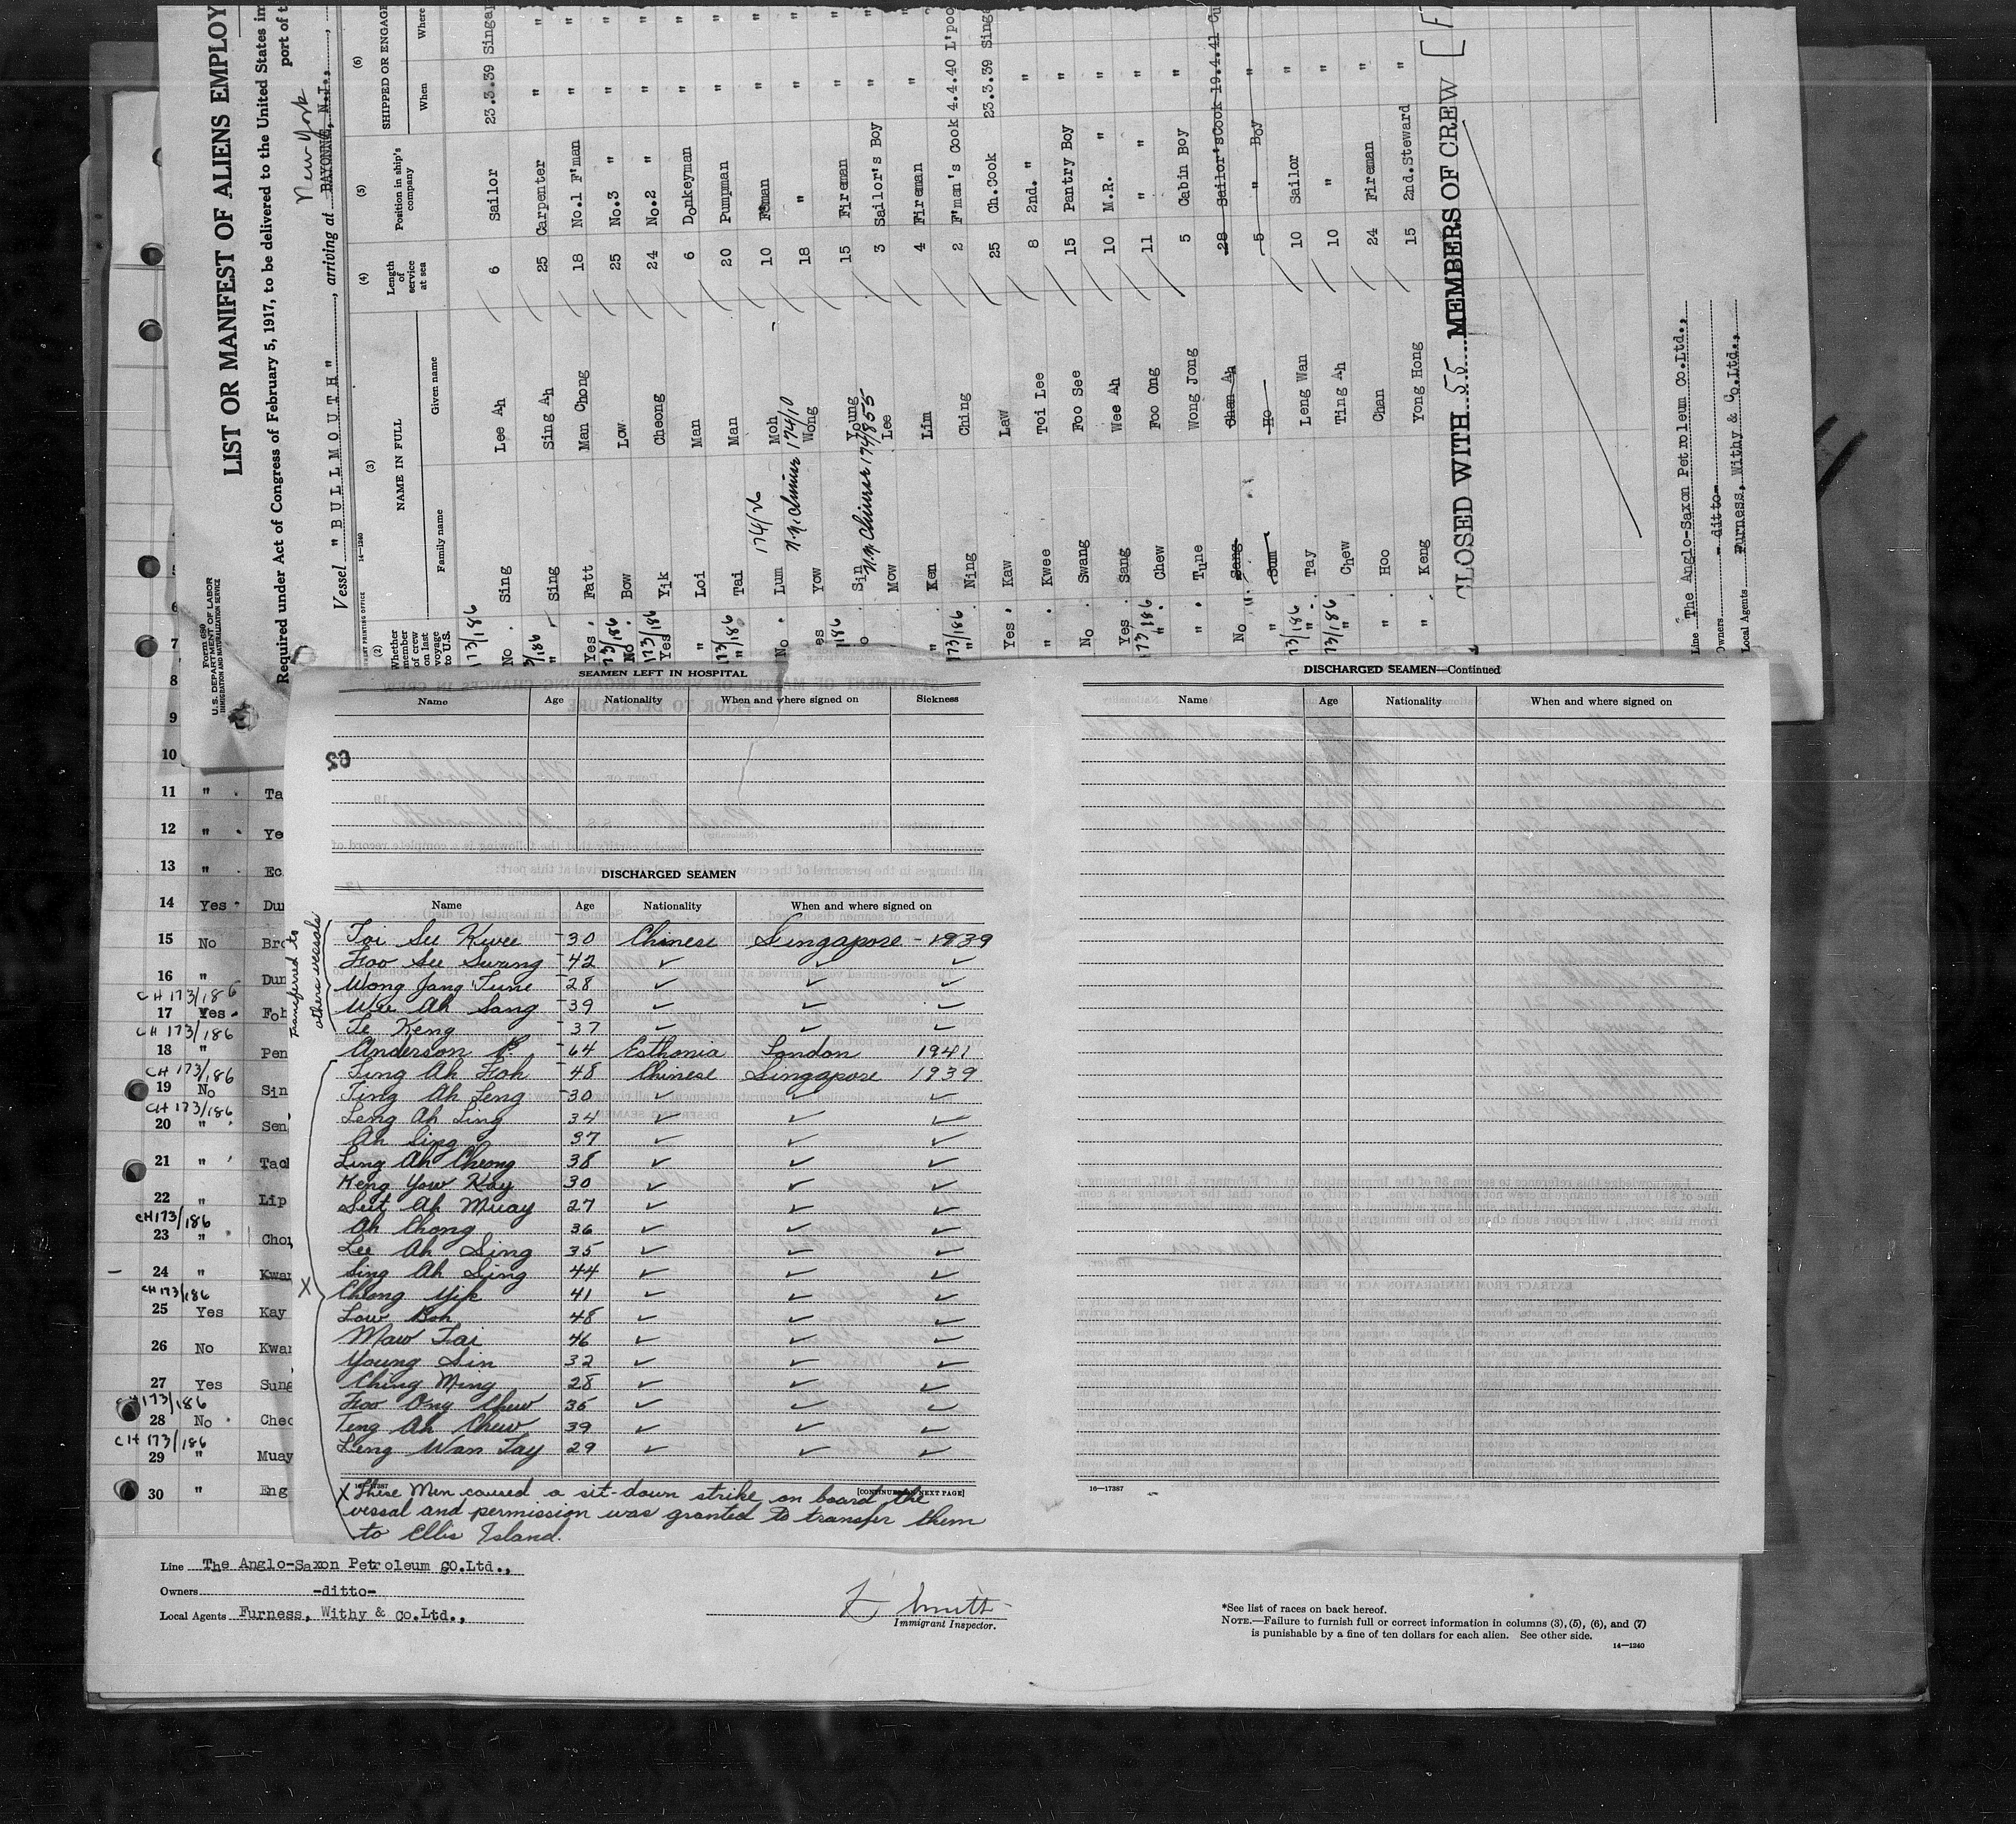 LIST OR MANIFEST OF ALIENS EMPLOY
Required under Act of Congress of February 5, 1917, to be delivered to the United States im
port of
New York
BAYONNE, N.J.,
Vessel "BULLMOUTH", arriving at
Form 680
U.S. DEPARTMENT OF LABOR
IMMIGRATION AND NATURALIZATION SERVICE
14—1240
(2) Whether member of crew on last voyage to U.S.
(3) NAME IN FULL
Family name Given name
(4) Length of service at sea
(5) Position in ship's company
(6) SHIPPED OR ENGAGE
When Where
173/186
No . Sing Lee Ah 6 Sailor 23.3.39 Singap
" Sing Sing Ah 25 Carpenter " "
Yes. Fatt Man Chong 18 No.1 F'man " "
173/186
No. Bow Low 25 No.3 " " "
173/186
Yes Yik Cheong 24 No.2 " " "
" Loi Man 6 Donkeyman " "
173/186
" Tai Man 20 Pumpman " "
174/26
No . Lum Moh 10 Fman " "
174/10
es Yow Wong 18 " " "
186
o Sin Young 15 Fireman " "
174/855
Mow Lee 3 Sailor's Boy " "
" Ken Lim 4 Fireman " "
173/186
" Ning Ching 2 F'man's Cook 4.4.40 L'poo
Yes. Kaw Law 25 Ch.Cook 23.3.39 Singa
" Kwee Toi Lee 8 2nd. " " "
No Swang Foo See 15 Pantry Boy " "
Yes. Sang Wee Ah 10 M.R. " " "
173/186
" Chew Foo Ong 11 " " " "
" Tune Wong Jong 5 Cabin Boy " "
No Sang Chan Ah 28 Sailor'sCook 19.4.41 Cu
" Sum Ho 5 " Boy " "
173/186
" Tay Leng Wan 10 Sailor " "
173/186
" Chew Ting Ah 10 " " "
" Hoo Chan 24 Fireman " "
" Keng Yong Hong 15 2nd.Steward " "
CLOSED WITH 55 MEMBERS OF CREW
Line The Anglo-Saxon Petroleum Co.Ltd.,
Owners -ditto-
Local Agents Furness, Withy & Co.Ltd.,
SEAMEN LEFT IN HOSPITAL
Name Age Nationality When and where signed on Sickness
DISCHARGED SEAMEN
Name Age Nationality When and where signed on
Transferred to
others vessels
Toi See Kwee 30 Chinese Singapore - 1939
Foo See Swang 42 ✓ ✓ ✓
Wong Jang Tune 28 ✓ ✓ ✓
Wee Ah Sang 39 ✓ ✓ ✓
Te Keng 37 ✓ ✓ ✓
Anderson P. 64 Esthonia London 1941
Ting Ah Foh 48 Chinese Singapore 1939
Ting Ah Leng 30 ✓ ✓ ✓
Leng Ah Ling 34 ✓ ✓ ✓
Ah Sing 37 ✓ ✓ ✓
Ling Ah Cheong 38 ✓ ✓ ✓
Keng Yow Kay 30 ✓ ✓ ✓
Suit Ah Muay 27 ✓ ✓ ✓
Ah Chong 36 ✓ ✓ ✓
Lee Ah Sing 35 ✓ ✓ ✓
Sing Ah Sing 44 ✓ ✓ ✓
X
Chong Yik 41 ✓ ✓ ✓
Low Boh 48 ✓ ✓ ✓
Maw Tai 46 ✓ ✓ ✓
Young Sin 32 ✓ ✓ ✓
Ching Ming 28 ✓ ✓ ✓
Foo Ong Chew 36 ✓ ✓ ✓
Teng Ah Chew 39 ✓ ✓ ✓
Leng Wan Tay 29 ✓ ✓ ✓
16—17387 [CONTINUED ON NEXT PAGE]
X These Men caused a sit-down strike on board the
vessal and permission was granted to transfer them
to Ellis Island.
DISCHARGED SEAMEN—Continued
Name Age Nationality When and where signed on
16—17387
5
6
7
8
9
10
11 " Ta
12 " Ye
13 " Ec
14 Yes Dun
15 No Bro
16 " Dun
CH 173/186
17 Yes Foh
CH 173/186
18 " Pen
CH 173/186
19 No Sin
CH 173/186
20 " Sen
21 " Tac
22 " Lip
CH 173/186
23 " Chon
24 " Kwan
CH 173/186
25 Yes Kay
26 No Kwan
27 Yes Sung
173/186
28 No Cheo
CH 173/186
29 " Muay
30 " Eng
Line The Anglo-Saxon Petroleum CO.Ltd.,
Owners -ditto-
Local Agents Furness, Withy & Co.Ltd.,
Smith
Immigrant Inspector.
*See list of races on back hereof.
NOTE.—Failure to furnish full or correct information in columns (3), (5), (6), and (7)
is punishable by a fine of ten dollars for each alien. See other side.
14—1240